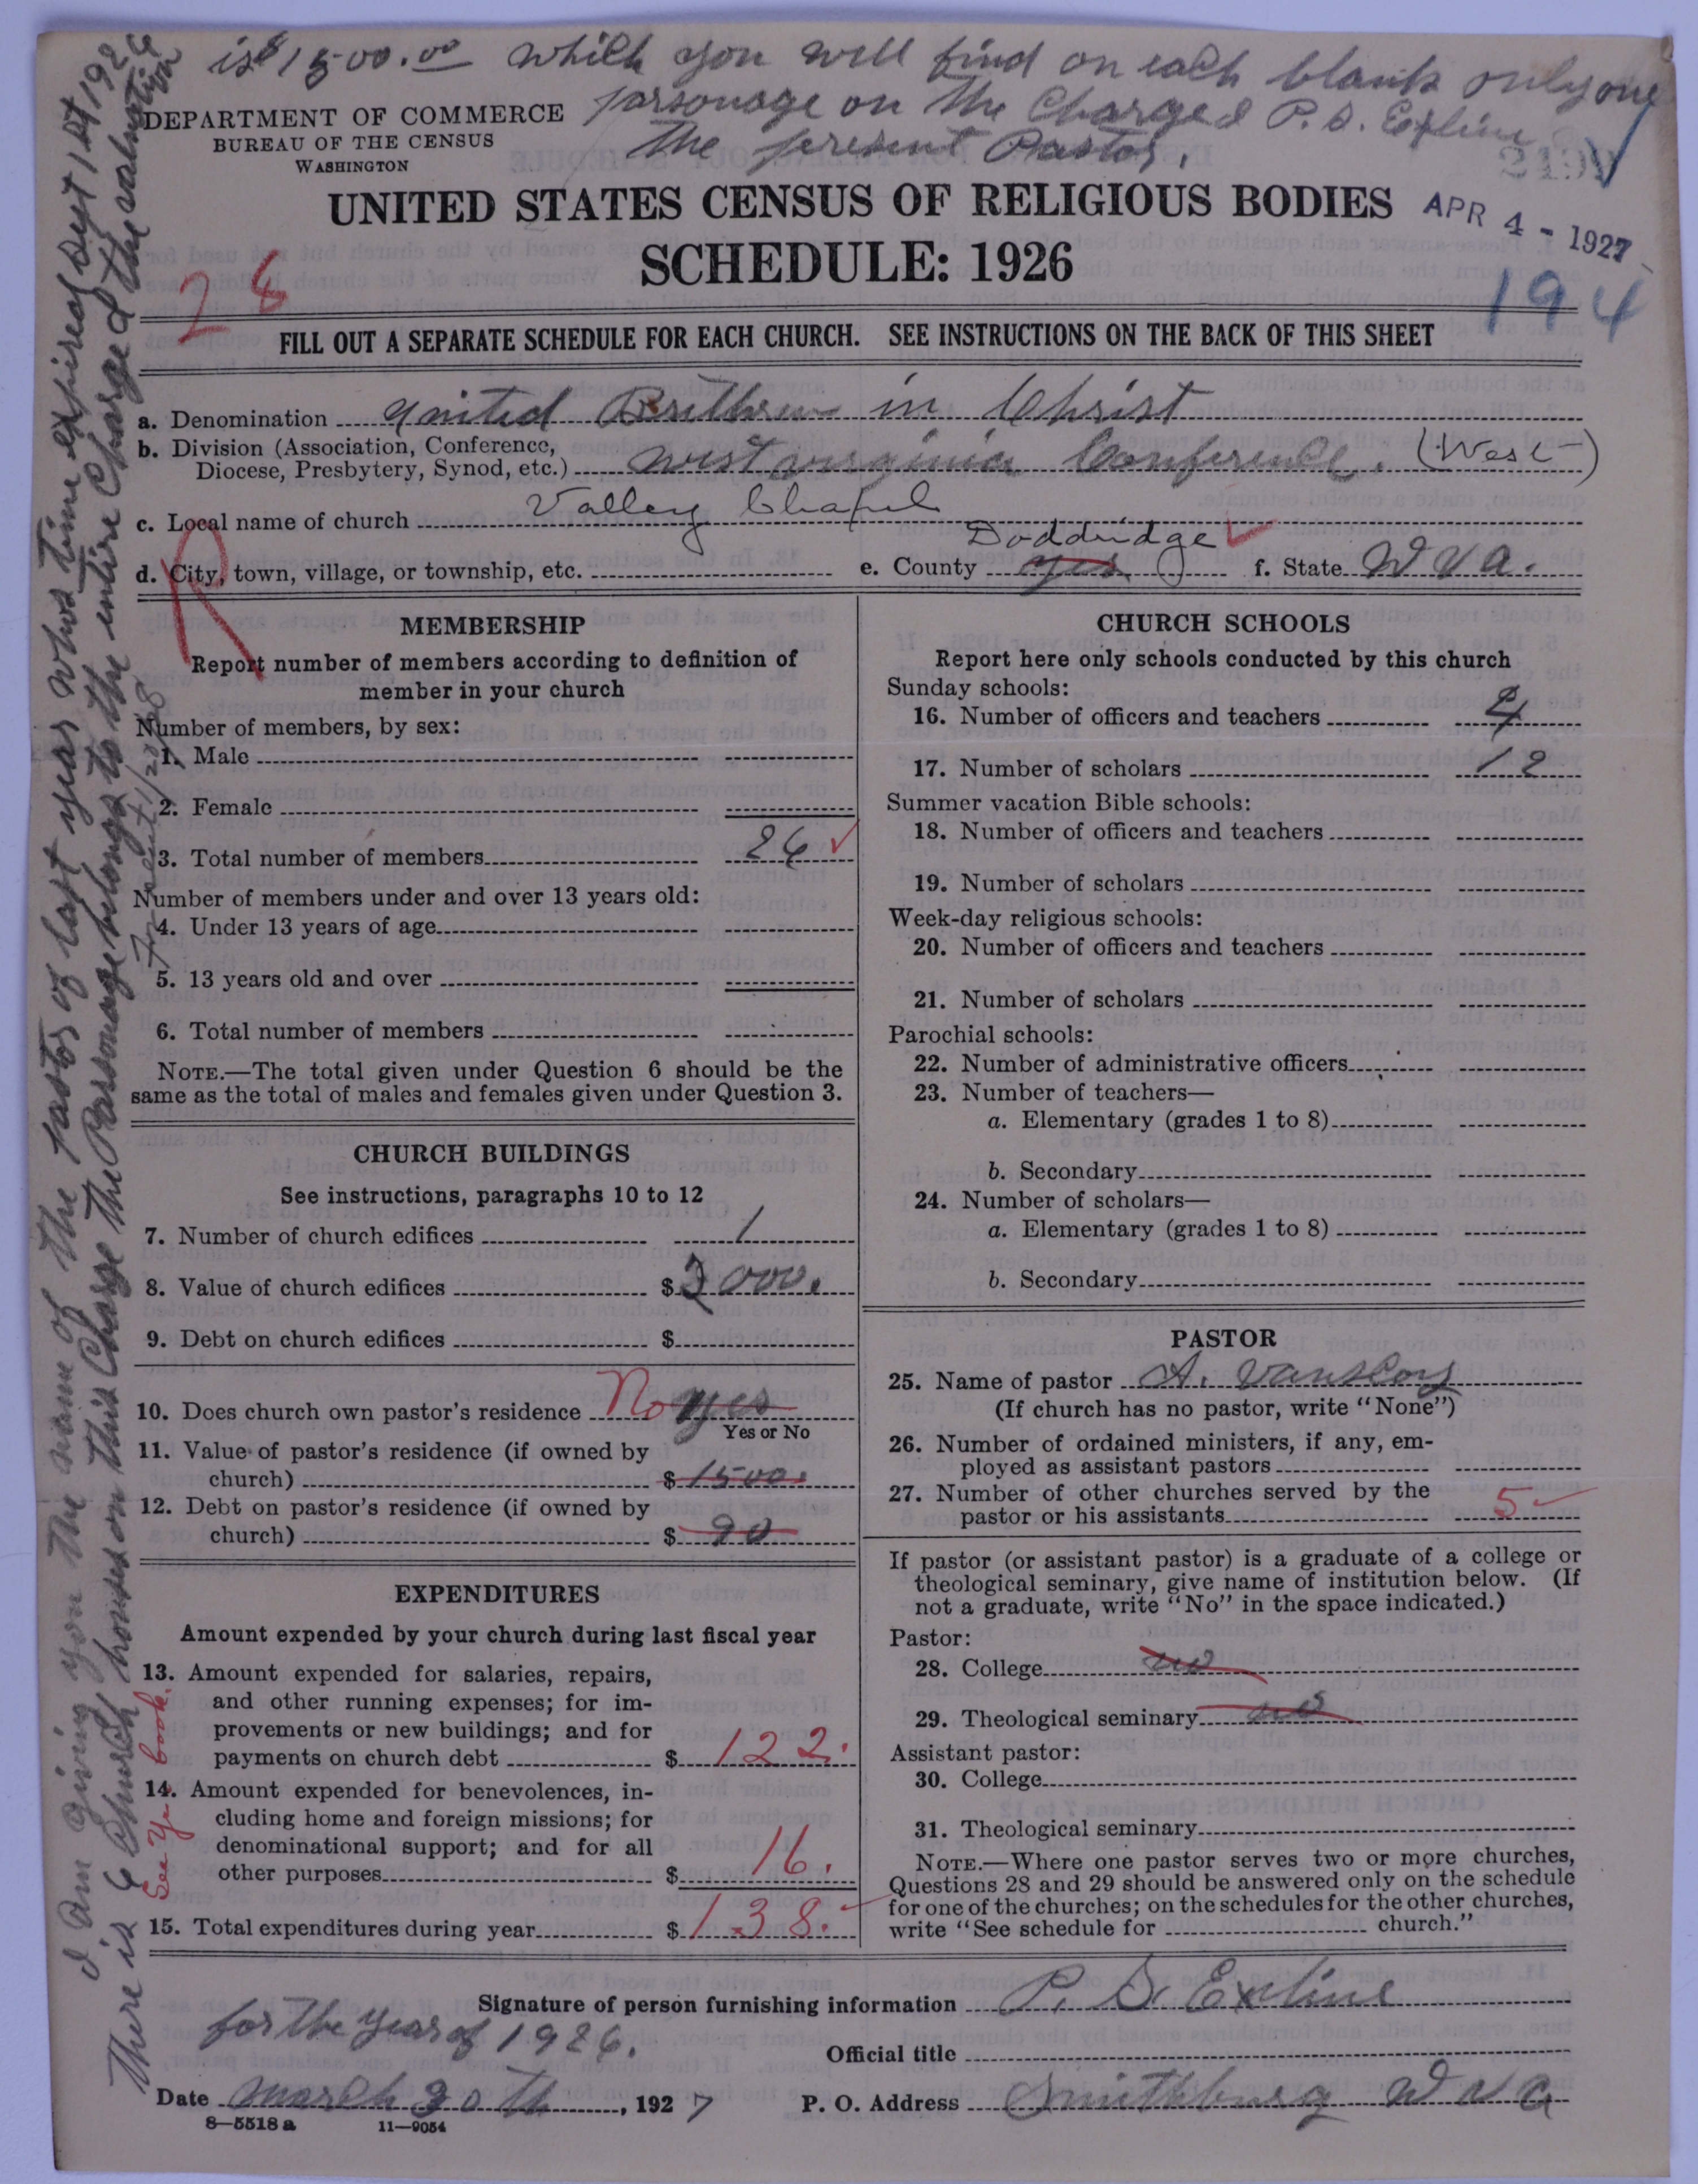 is $1500.00 which you will find on each blank only one
parsonage on the Charge P.S. Exline
the present Pastor.
DEPARTMENT OF COMMERCE
BUREAU OF THE CENSUS
WASHINGTON
UNITED STATES CENSUS OF RELIGIOUS BODIES
APR 4 - 1927
SCHEDULE: 1926
28
194
FILL OUT A SEPARATE SCHEDULE FOR EACH CHURCH. SEE INSTRUCTIONS ON THE BACK OF THIS SHEET
a. Denomination United Brethren in Christ
b. Division (Association, Conference,
Diocese, Presbytery, Synod, etc.) West Virginia Conference. (West)
c. Local name of church Valley Chapel
d. City, town, village, or township, etc. e. County yes Doddridge f. State W Va.
R
MEMBERSHIP
Report number of members according to definition of
member in your church
Number of members, by sex:
1. Male
2. Female
3. Total number of members 26
Number of members under and over 13 years old:
4. Under 13 years of age
5. 13 years old and over
6. Total number of members
NOTE.—The total given under Question 6 should be the
same as the total of males and females given under Question 3.
CHURCH BUILDINGS
See instructions, paragraphs 10 to 12
7. Number of church edifices 1
8. Value of church edifices $ 2000.
9. Debt on church edifices $
10. Does church own pastor's residence No yes
Yes or No
11. Value of pastor's residence (if owned by
church) $ 1500.
12. Debt on pastor's residence (if owned by
church) $ 90
EXPENDITURES
Amount expended by your church during last fiscal year
13. Amount expended for salaries, repairs,
and other running expenses; for im-
provements or new buildings; and for
payments on church debt $ 122.
14. Amount expended for benevolences, in-
cluding home and foreign missions; for
denominational support; and for all
other purposes $ 16.
15. Total expenditures during year $ 138.
See Y book.
CHURCH SCHOOLS
Report here only schools conducted by this church
Sunday schools:
16. Number of officers and teachers 4
17. Number of scholars 12
Summer vacation Bible schools:
18. Number of officers and teachers
19. Number of scholars
Week-day religious schools:
20. Number of officers and teachers
21. Number of scholars
Parochial schools:
22. Number of administrative officers
23. Number of teachers—
a. Elementary (grades 1 to 8)
b. Secondary
24. Number of scholars—
a. Elementary (grades 1 to 8)
b. Secondary
PASTOR
25. Name of pastor A. Vanscoy
(If church has no pastor, write "None")
26. Number of ordained ministers, if any, em-
ployed as assistant pastors
27. Number of other churches served by the
pastor or his assistants 5
If pastor (or assistant pastor) is a graduate of a college or
theological seminary, give name of institution below. (If
not a graduate, write "No" in the space indicated.)
Pastor:
28. College no
29. Theological seminary no
Assistant pastor:
30. College
31. Theological seminary
NOTE.—Where one pastor serves two or more churches,
Questions 28 and 29 should be answered only on the schedule
for one of the churches; on the schedules for the other churches,
write "See schedule for church."
Signature of person furnishing information P. S. Exline
for the year of 1926.
Official title
Date March 30th, 1927 P. O. Address Smithburg W Va
8—5518a 11—9054
I am giving you the name of the pastor of last year whos time expires Sept 1st 1926
There is 6 Church houses on this Charge the Parsonage belongs to the entire Charge the valuation